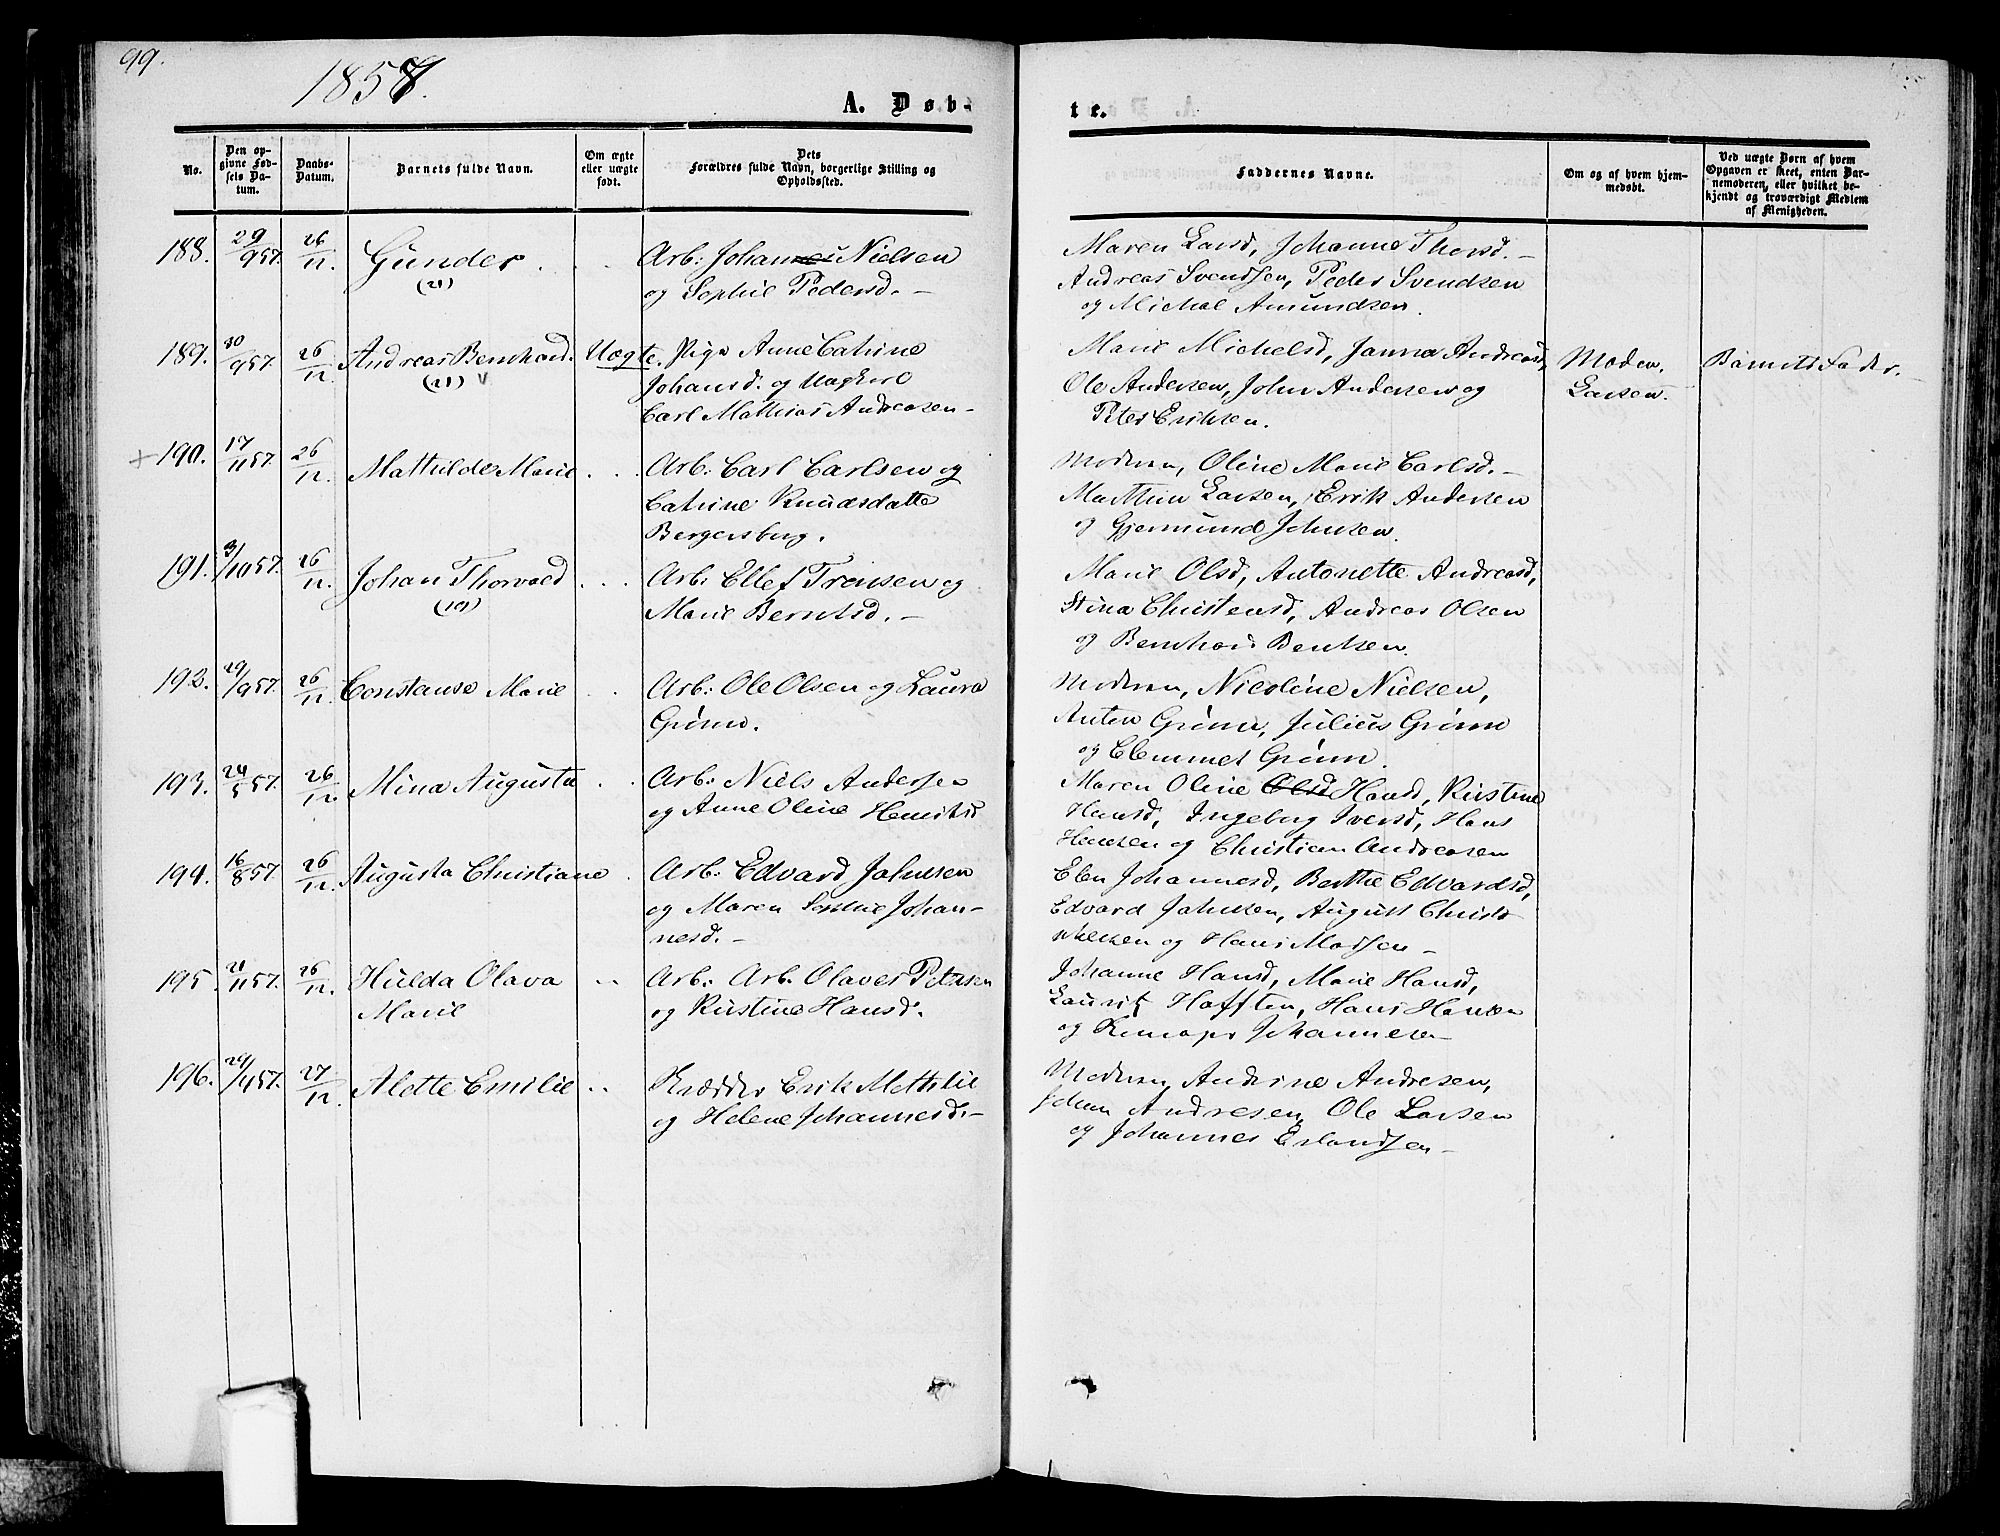 99.
1857.
A. Døb-
te.
No.
Den op-
givne Fød-
sels Da-
tum.
Daabs-
Datum.
Barnets fulde Navn.
Om ægte
eller uægte
født.
Dets
Forældres fulde Navn, borgerlige Stilling og
Opholdssted.
Faddernes Navne.
Om og af hvem hjem-
medøbt.
Ved uægte Børn af hvem
Opgaven er skeet, enten Bar-
nemoderen, eller hvilket be-
kjendt og troværdigt Medlem
af Menigheden.
188. 29/9 57. 26/12 Gunder
(21)
Arb: Johan Nielsen
og Sophie Pedersd. -
Maren Larsd, Johanne Thorsd. -
Andreas Svendsen, Peder Svendsen
og Michal Amundsen.
189. 30/9 57. 26/12 Andreas Bernhard. Uægte.
(21)
Pige Anne Catrine
Johansd. og Ungkarl
Carl Mathias Andreasen -
Marie Michelsd, Janna Andreasd,
Ole Andersen, John Andersen og
Peter Eriksen.
Maden
Larsen.
Barnets Fader.
190. 17/11 57. 26/12. Mathilde Marie
Arb: Carl Carlsen og
Catrine Knudsdatte
Bergersberg.
Moderen, Oline Marie Carlsd. -
Marthin Larsen, Erik Andersen
og Gjermund Johnsen.
191. 3/10 57. 26/12. Johan Thorvald
(10)
Arb: Ellef Trensen og
Marie Berntsd. -
Marie Olsd, Antonette Andreasd,
Stina Christensd, Andreas Olsen
og Bernhard Bentsen.
192. 29/9 57. 26/12 Constanse Marie
Arb: Ole Olsen og Laura
Grimm.
Moderen, Nicoline Nielsen,
Anten Grimm, Julius Grimm
og Clemmet Grimm.
193. 24/5 57. 26/12. Mina Augusta
Arb: Niels Andersen
og Anne Oline Henriksd
Maren Oline Olsd Hansd, Kristine
Hansd, Ingeborg Iversd, Hans
Hansen og Christian Andreasen
194. 16/8 57 26/12. Augusta Christiane
Arb: Edvard Johnsen
og Maren Sophie Johan-
nesd. -
Elen Johannesd, Berthe Edvardsd,
Edvard Johnsen, August Christo
phersen og Hans Madsen -
195. 21/11 57. 26/12. Hulda Olava
Marie
Arb: Arb. Olaves Petersen
og Kristine Hansd.
Johanne Hansd, Marie Hansd,
Lauritz Hafften, Hans Hansen
og Johannesen
196. 29/4 57. 27/12. Alette Emilie
Kræmmer Erik Metslie
og Helene Johannesd. -
Moderen, Andrine Andresen,
Johan Andresen, Ole Larsen
og Johannes Erlandsen -